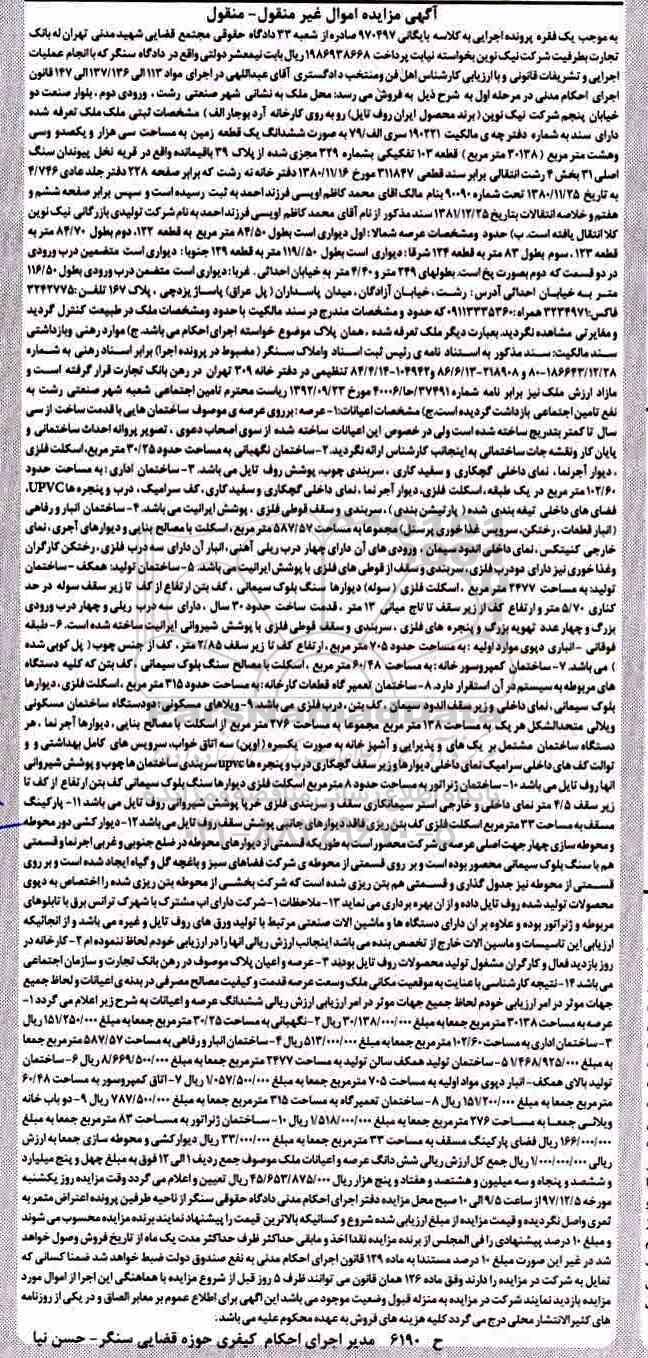 آگهی مزایده اموال غیر منقول- منقول
به موجب یک فقره پرونده اجرایی به کلاسه بایگانی ۹۷۰۴۹۷ صادره از شعبه ۳۳ دادگاه حقوقی مجتمع قضایی شهید مدنی تهران له بانک
تجارت بطرفیت شرکت نیک نوین بخواسته نیابت پرداخت ۱۹۸۶۹۳۸۶۶۸ ریال بابت نیمعشر دولتی واقع در دادگاه سنگر که با انجام عملیات
اجرایی و تشریفات قانونی و با ارزیابی کارشناس اهل فن ومنتخب دادگستری آقای عبداللهی در اجرای مواد ۱۱۳ الی ۱۳۷/۱۳۶ الی ۱۴۷ قانون
اجرای احکام مدنی در مرحله اول به شرح ذیل به فروش می رسد: محل ملک به نشانی شهر صنعتی رشت ، ورودی دوم ، بلوار صنعت دو
خیابان پنجم شرکت نیک نوین (برند محصول ایران روف تایل) رو به روی کارخانه آرد بوجار الف) مشخصات ثبتی ملک ملک تعرفه شده
دارای سند به شماره دفتر چه ی مالکیت ۱۹۰۲۲۱ سری الف/۷۹ به صورت ششدانگ یک قطعه زمین به مساحت سی هزار و یکصدو وسی
وهشت متر مربع (۳۰۱۳۸ متر مربع ) قطعه ۱۰۳ تفکیکی بشماره ۳۲۹ مجزی شده از پلاک ۳۹ باقیمانده واقع در قریه نخل پیوندان سنگ
اصلی ۳۱ بخش ۴ رشت انتقالی برابر سند قطعی ۳۱۱۸۴۷ مورخ ۱۳۸۰/۱۱/۱۶ دفتر خانه نه رشت که برابر صفحه ۲۲۸ دفتر جلد عادی ۴/۷۴۶
به تاریخ ۱۳۸۰/۱۱/۲۵ تحت شماره ۹۰۰۹۰ بنام مالک اقای محمد کاظم اویسی فرزند احمد به ثبت رسیده است و سپس برابر صفحه ششم و
هفتم و خلاصه انتقالات بتاریخ ۱۳۸۱/۱۲/۲۵ سند مذکور از نام آقای محمد کاظم اویسی فرزند احمد به نام شرکت تولیدی بازرگانی نیک نوین
کلا انتقال یافته است. ب) حدود ومشخصات عرصه شمالا: اول دیواری است بطول ۸۴/۵۰ متر مربع به قطعه ۱۲۲، دوم بطول ۸۴/۷۰ متر به
قطعه ۱۲۳ ، سوم بطول ۸۳ متر به قطعه ۱۲۴ شرقا: دیواری است بطول ۱۱۹/۵۰ متر به قطعه ۱۲۹ جنوبا : دیواری است متضمین درب ورودی
در دو قسمت که دوم بصورت پخ است، بطولهای ۲۴۹ متر و ۴/۴۰ متر به خیابان احداثی . غربا: دیواری است متضمن درب ورودی بطول ۱۱۶/۵۰
متر به خیابان احداثی آدرس : رشت ، خیابان آزادگان، میدان پاسداران (پل عراق) پاساژ یزدچی ، پلاک ۱۶۷ تلفن:۳۲۴۲۷۷۵
فاکس:۳۲۳۴۹۷۱ همراه: ۰۹۱۱۳۳۳۵۳۶۰ که حدود و مشخصات مندرج در سند مالکیت با حدود ومشخصات ملک در طبیعت کنترل گردید
و مغایرتی مشاهده نگردید. بعبارت دیگر ملک تعرفه شده ، همان پلاک موضوع خواسته اجرای احکام می باشد. ج) موارد رهنی وبازداشتی
سند مالکیت: سند مذکور به استناد نامه ی رئیس ثبت اسناد واملاک سنگر (مضبوط در پرونده اجرا) برابر اسناد رهنی به شماره
۸۰-۱۸۶۶۴۳/۱۲/۲۸ و ۲۱۸۹۰۸-۸۶/۶/۱۳ و ۱۰۴۹۴۲-۸۴/۴/۱۴ تنظیمی در دفتر خانه ۳۰۹ تهران در رهن بانک تجارت قرار گرفته است و
مازاد ارزش ملک نیز برابر نامه شماره ۳۷۴۹۱/حا/۴۰۰۰۶ مورخ ۱۳۹۲/۰۹/۲۳ ریاست محترم تامین اجتماعی شعبه شهر صنعتی رشت به
نفع تامین اجتماعی بازداشت گردیده است.ج) مشخصات اعیانات:۱- عرصه : برروی عرصه ی موصوف ساختمان هایی با قدمت ساخت از سی
سال تا کمتر بتدریج ساخته شده است ولی در خصوص این اعیانات ساخته شده از سوی اصحاب دعوی ، تصویر پروانه احداث ساختمانی و
پایان کار ونقشه جات ساختمانی به اینجانب کارشناس ارائه نگردید. ۲- ساختمان نگهبانی به مساحت حدود ۳۰/۲۵ متر مربع، اسکلت فلزی
، دیوار آجرنما، نمای داخلی گچکاری و سفید کاری ، سربندی چوب، پوشش روف تایل می باشد. ۳- ساختمان اداری : به مساحت حدود
۱۰۲/۶۰ متر مربع در یک طبقه، اسکلت فلزی، دیوار آجر نما ، نمای داخلی گچکاری و سفید کاری، کف سرامیک، درب و پنجره ها UPVC،
فضای های داخلی تیغه بندی شده (پارتیشن بندی) ، سربندی و سقف قوطی فلزی ، پوشش ایرانیت می باشد. ۴- ساختمان انبار و رفاهی
(انبار قطعات ، رختکن، سرویس غذا خوری پرسنل) مجموعا به مساحت ۵۸۷/۵۷ متر مربع ، اسکلت با مصالح بنایی و دیوارهای آجری، نمای
خارجی کنیتکس ، نمای داخلی اندود سیمان ، ورودی های آن دارای چهار درب ریلی آهنی، انبار آن دارای سه درب فلزی، رختکن کارگران
وغذا خوری نیز دارای دودرب فلزی، سربندی و سقف از قوطی های فلزی با پوشش ایرانیت می باشد. ۵- ساختمان تولید: همکف - ساختمان
تولید: به مساحت ۲۴۷۷ متر مربع ، اسکلت فلزی (سوله) دیوارها سنگ بلوک سیمانی ، کف بتن ارتفاع از کف تا زیر سقف سوله در حد
کناری ۵/۷۰ متر و ارتفاع کف از زیر سقف تا تاج میانی ۱۳ متر ، قدمت ساخت حدود ۳۰ سال ، دارای سه درب ریلی و چهار درب ورودی
بزرگ و چهار عدد تهویه بزرگ و پنجره های فلزی ، سربندی و سقف قوطی فلزی با پوشش شیروانی ایرانیت ساخته شده است. ۶- طبقه
فوقانی - انباری دپوی موارد اولیه : به مساحت حدود ۷۰۵ متر مربع ، ارتفاع کف تا زیر سقف ۲/۸۵ متر ، کف از جنس چوب (پل کوبی شده
) می باشد. ۷- ساختمان کمپروسور خانه : به مساحت ۶۰/۴۸ متر مربع ، اسکلت با مصالح سنگ بلوک سیمانی ، کف بتن که کلیه دستگاه
های مربوطه به سیستم در آن استقرار دارد. ۸- ساختمان تعمیر گاه قطعات کارخانه : به مساحت حدود ۳۱۵ متر مربع ، اسکلت فلزی، دیوارها
بلوک سیمانی ، نمای داخلی و زیر سقف اندود سیمان ، کف بتن، درب فلزی می باشد. ۹- ویلاهای مسکونی: دودستگاه ساختمان مسکونی
ویلائی متحدالشکل هر یک به مساحت ۱۳۸ متر مربع مجموعا به مساحت ۲۷۶ متر مربع از اسکلت با مصالح بنایی ، دیوارها آجر نما ، هر
دستگاه ساختمان مشتمل بر یک های و پذیرایی و آشپز خانه به صورت یکسره (اوپن) سه اتاق خواب، سرویس های کامل بهداشتی و و
توالت کف های داخلی سرامیک نمای داخلی دیوارها و زیر سقف گچکاری درب و پنجره ها upvc سربندی ساختمان ها چوب و پوشش شیروانی
انها روف تایل می باشد ۱۰- ساختمان ژنراتور به مساحت حدود ۸۰ متر مربع اسکلت فلزی دیوارها سنگ بلوک سیمانی کف بتن ارتفاع از کف تا
زیر سقف ۴/۵ متر نمای داخلی و خارجی آستر سیمانکاری سقف و سربندی فلزی خرپا پوشش شیروانی روف تایل می باشد ۱۱- پارکینگ
مسقف به مساحت ۳۳ متر مربع اسکلت فلزی کف بتن ریزی فاقد دیوارهای جانبی پوشش سقف روف تایل می باشد ۱۲- دیوار کشی دور محوطه
و محوطه سازی چهار جهت اصلی عرصه ی شرکت محصور است به طوریکه قسمتی از دیوارهای محوطه در ضلع جنوبی و غربی اجرنما و قسمتی
هم با سنگ بلوک سیمانی محصور بوده است و بر روی قسمتی از محوطه ی شرکت فضاهای سبز و باغچه گل و گیاه ایجاد شده است و بر روی
قسمتی از محوطه نیز جدول گذاری و قسمتی هم بتن ریزی شده است که شرکت بخشی از محوطه بتن ریزی شده را اختصاص به دپوی
محصولات تولید شده روف تایل داده و از ان بهره برداری می نماید ۱۳- ملاحظات ۱- شرکت دارای اب مشترک با شهرک ترانس برق با تابلوهای
مربوطه و ژنراتور بوده و علاوه بر ان دارای دستگاه ها و ماشین الات صنعتی مرتبط با تولید ورق های روف تایل و غیره می باشد و از انجائیکه
ارزیابی این تاسیسات و ماسین الات خارج از تخصص بنده می باشد اینجانب ارزش ریالی انها را در ارزیابی خودم لحاظ ننموده ام ۲- کارخانه در
روز بازدید فعال و کارگران مشغول تولید محصولات روف تایل بودند ۳- عرصه و اعیان پلاک موصوف در رهن بانک تجارت و سازمان اجتماعی
می باشد ۱۴- نتیجه کارشناسی با عنایت به موقعیت مکانی ملک وسعت عرصه قدمت و کیفیت مصالح مصرفی در بدنه ی اعیانات و لحاظ جمیع
جهات موثر در امر ارزیابی خودم لحاظ جمیع جهات موثر در امر ارزیابی ارزش ریالی ششدانگ عرصه و اعیانات به شرح زیر اعلام می گردد ۱-
عرصه به مساحت ۳۰۱۳۸ متر مربع جمعا به مبلغ ۳۰/۱۳۸/۰۰۰/۰۰۰ ریال ۲- نگهبانی به مساحت ۳۰/۲۵ متر مربع جمعا به مبلغ ۱۵۱/۲۵۰/۰۰۰ ریال
۳- ساختمان اداری به مساحت ۱۰۲/۶۰ متر مربع جمعا به مبلغ ۵۱۳/۰۰۰/۰۰۰ ریال ۴- ساختمان انبار و رفاهی به مساحت ۵۸۷/۵۷ متر مربع جمعا
به مبلغ ۱/۴۶۸/۹۲۵/۰۰۰ ۵- ساختمان تولید همکف سالن تولید به مساحت ۲۴۷۷ متر مربع جمعا به مبلغ ۸/۶۶۹/۵۰۰/۰۰۰ ریال ۶- ساختمان
تولید بالای همکف- انبار دپوی مواد اولیه به مساحت ۷۰۵ متر مربع جمعا به مبلغ ۱/۰۵۷/۵۰۰/۰۰۰ ریال ۷- اتاق کمپروسور به مساحت ۶۰/۴۸
متر مربع جمعا به مبلغ ۱۵۱/۲۰۰/۰۰۰ ریال ۸- ساختمان تعمیرگاه به مساحت ۳۱۵ متر مربع جمعا به مبلغ ۷۸۷/۵۰۰/۰۰۰ ریال ۹- دو باب خانه
ویلائی جمعا به مساحت ۲۷۶ متر مربع جمعا به مبلغ ۱/۵۱۸/۰۰۰/۰۰۰ ریال ۱۰- ساختمان ژنراتور به مساحت ۸۳ متر مربع جمعا به مبلغ
۱۶۶/۰۰۰/۰۰۰ ریال فضای پارکینگ مسقف به مساحت ۳۳ متر مربع جمعا به مبلغ ۳۳/۰۰۰/۰۰۰ ریال دیوارکشی و محوطه سازی جمعا به ارزش
ریالی ۱/۰۰۰/۰۰۰/۰۰۰ ریال جمع کل ارزش ریالی شش دانگ عرصه و اعیانات ملک موصوف جمع ردیف ۱ الی ۱۲ فوق به مبلغ چهل و پنج میلیارد
و ششصد و پنجاه و سه میلیون و هشتصد و هفتاد و پنج هزار ریال ۴۵/۶۵۳/۸۷۵/۰۰۰ ریال تعیین و اعلام می گردد وقت مزایده روز یکشنبه
مورخه ۹۷/۱۲/۵ از ساعت ۹/۵ الی ۱۰ صبح محل مزایده دفتر اجرای احکام مدنی دادگاه حقوقی سنگر از ناحیه طرفین پرونده اعتراض مثمر به
ثمری واصل نگردیده و قیمت مزایده از مبلغ ارزیابی شده شروع و کسانیکه بالاترین قیمت را پیشنهاد نمایند برنده مزایده محسوب می شوند
و مبلغ ۱۰ درصد پیشنهادی را فی المجلس از برنده مزایده نقدا اخذ و مابقی حداکثر ظرف حداکثر مدت یک ماه از تاریخ فروش وصول خواهد
شد در غیر این صورت مبلغ ۱۰ درصد مستندا به ماده ۱۲۹ قانون اجرای احکام مدنی به نفع صندوق دولت ضبط خواهد شد ضمنا کسانی که
تمایل به شرکت در مزایده را دارند وفق ماده ۱۲۶ همان قانون می توانند ظرف ۵ روز قبل از شروع مزایده با هماهنگی این اجرا از اموال مورد
مزایده بازدید نمایند شرکت در مزایده به منزله قبول وضعیت موجود می باشد این آگهی برای اطلاع عموم بر معابر الصاق و در یکی از روزنامه
های کثیرالانتشار محلی درج می گردد کلیه هزینه های فروش به عهده محکوم علیه می باشد.
ح ۶۱۹۰ مدیر اجرای احکام کیفری حوزه قضایی سنگر- حسن نیا